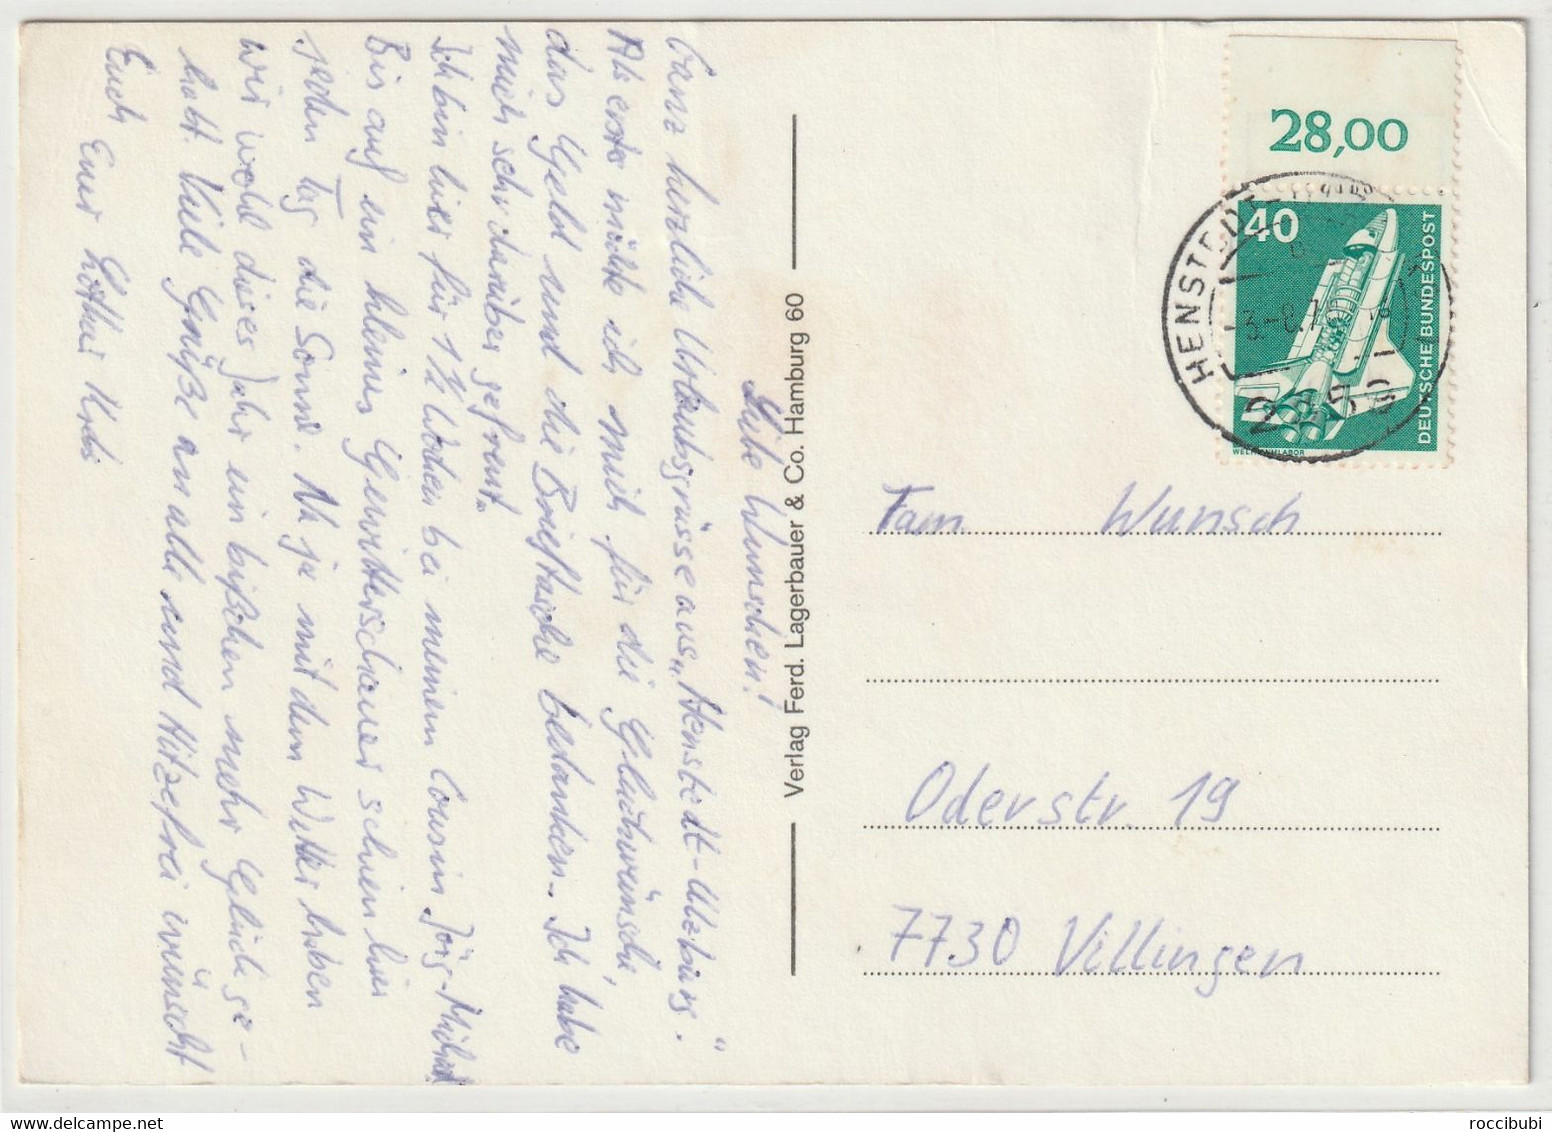 Liebe Wunschen!
Ganz herzliche Urlaubsgrüsse aus „Henstedt-Ulzburg".
Als erste möchte ich mich für die Glückwünsche,
das Geld und die Brieftasche bedanken. Ich habe
mich sehr darüber gefreut.
Ich bin hier für 1½ Wochen bei meinem Cousin Jörg-Michael.
Bis auf ein kleines Gewitter schien hier
jeden Tag die Sonne. Na ja mit dem Wetter haben
wir wohl dieses Jahr ein bißchen mehr Glück ge-
habt. Viele Grüße an alle und Hitzefrei wünscht
Euch Euer
Verlag Ferd. Lagerbauer & Co. Hamburg 60
28,00
40
DEUTSCHE BUNDESPOST
WELTRAUMLABOR
HENSTEDT-
Fam Wunsch
Oderstr. 19
7730 Villingen
roccibubi